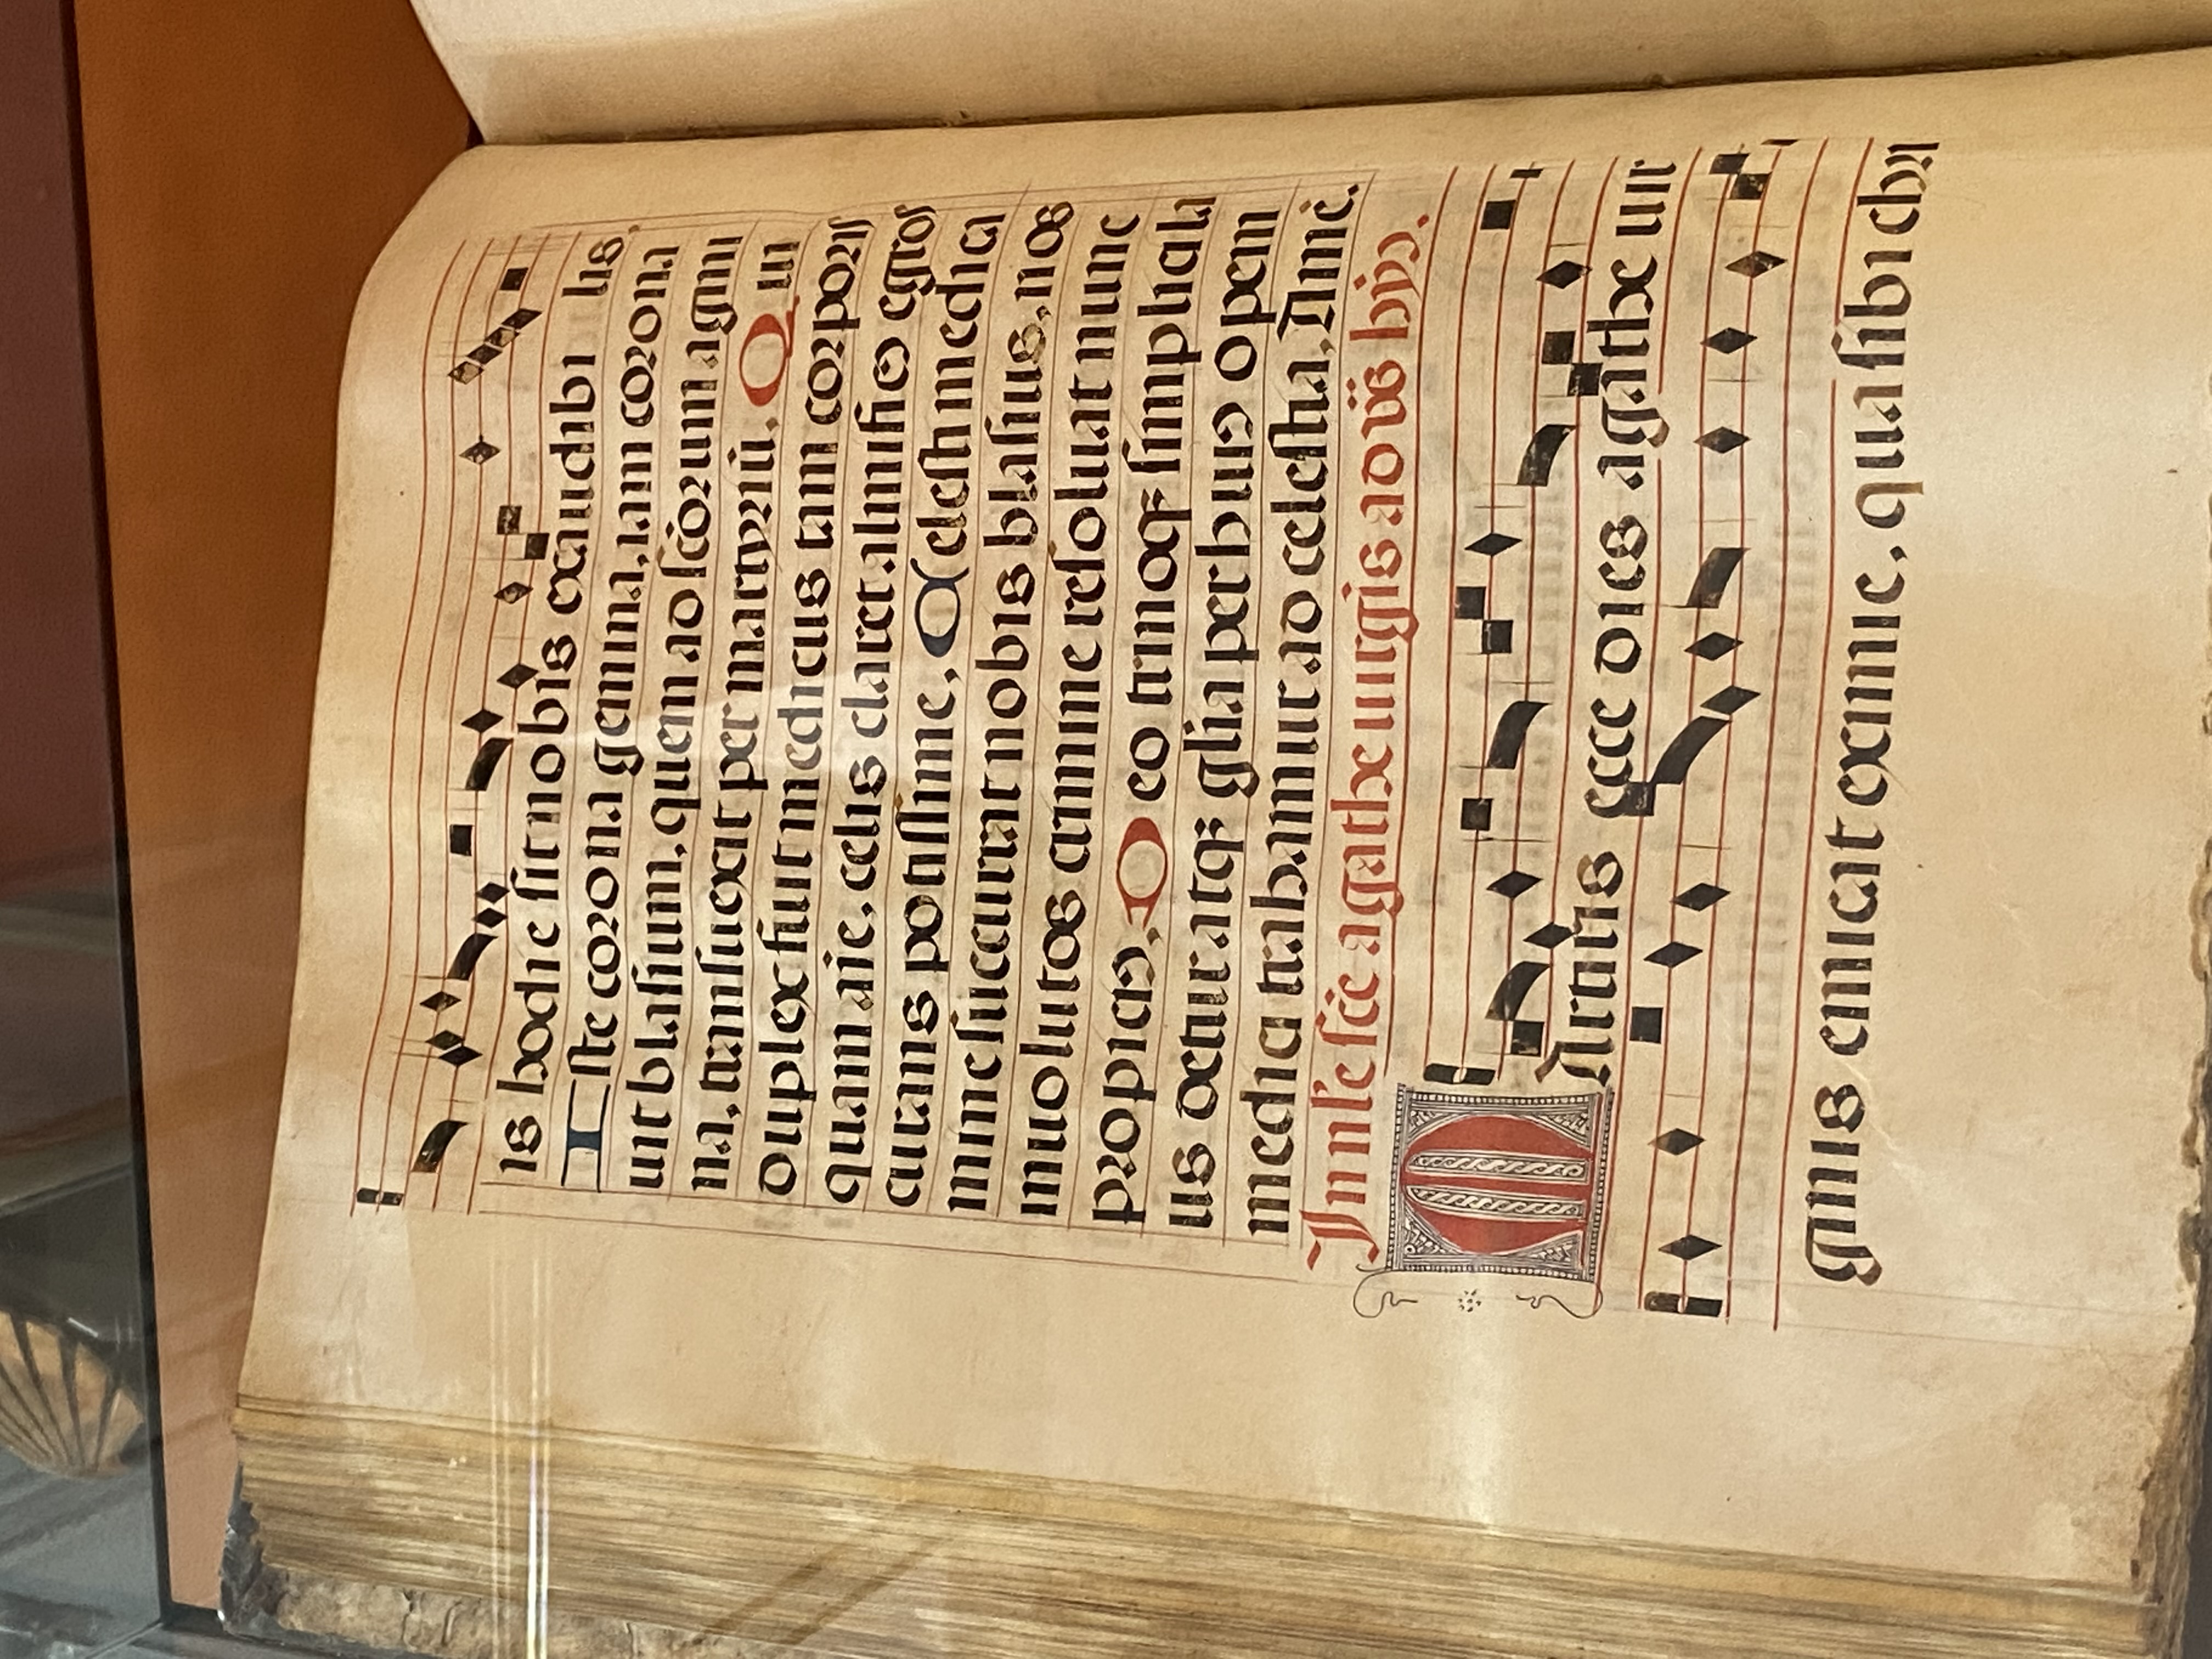 is hodie sit nobis exaudibi lis.
Iste corona gemina, iam corona
uit blasium, quem ad scõrum agmi
na, transuexit per martyriũ. Qui
duplex fuit medicus tam corporis
quam aĩe, celis claret almifico egros
curans potissime, O celesti medica
mine sic curat nos blasius, nos
inuolutos crimine resoluat nunc
propicio. Deo trinoqȝ simplici la
us detur atqȝ gl̃ia per huiꝯ opem
medici trahamur ad celestia, Amẽ.
In nr̃e sc̃e agathe uirgis ad uẽs hyp̃.
Martiris ecce dies agathe uir
ginis emicat eximie, qua sibi chri